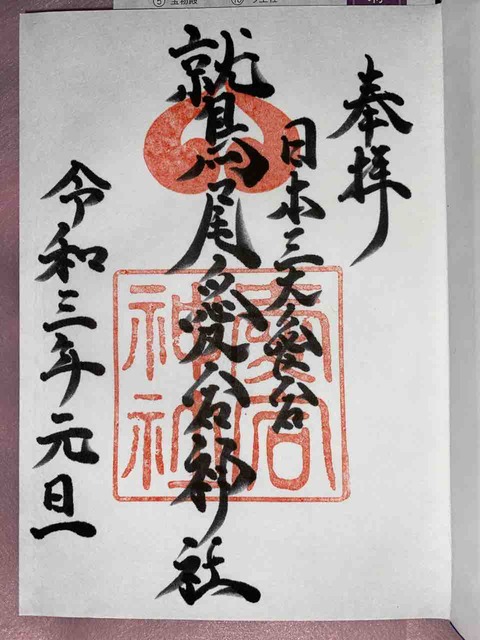 奉拝
日本三大愛宕
鷲尾愛宕神社
愛宕
神社
令和三年元旦